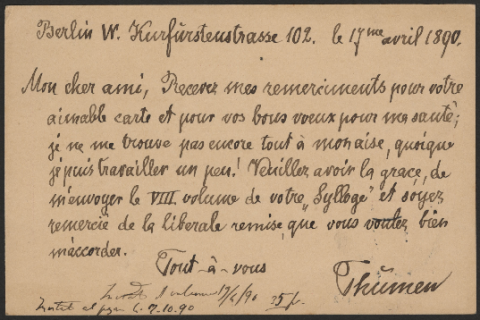 Berlin W. Kurfürstenstrasse 102. le 17me avril 1890.
Mon cher ami, Recevez mes remerciments pour votre
aimable carte et pour vos bons voeux pour ma santé;
je ne me trouve pas encore tout à mon aise, quoique
je puis travailler un peu! Veuillez avoir la grace, de
m'envoyer le VIII. volume de votre „Sylloge" et soyez
remercié de la liberale remise, que vous voulez bien
m'accorder.
Tout-à-vous
Thümen
25 f.
7.10.90